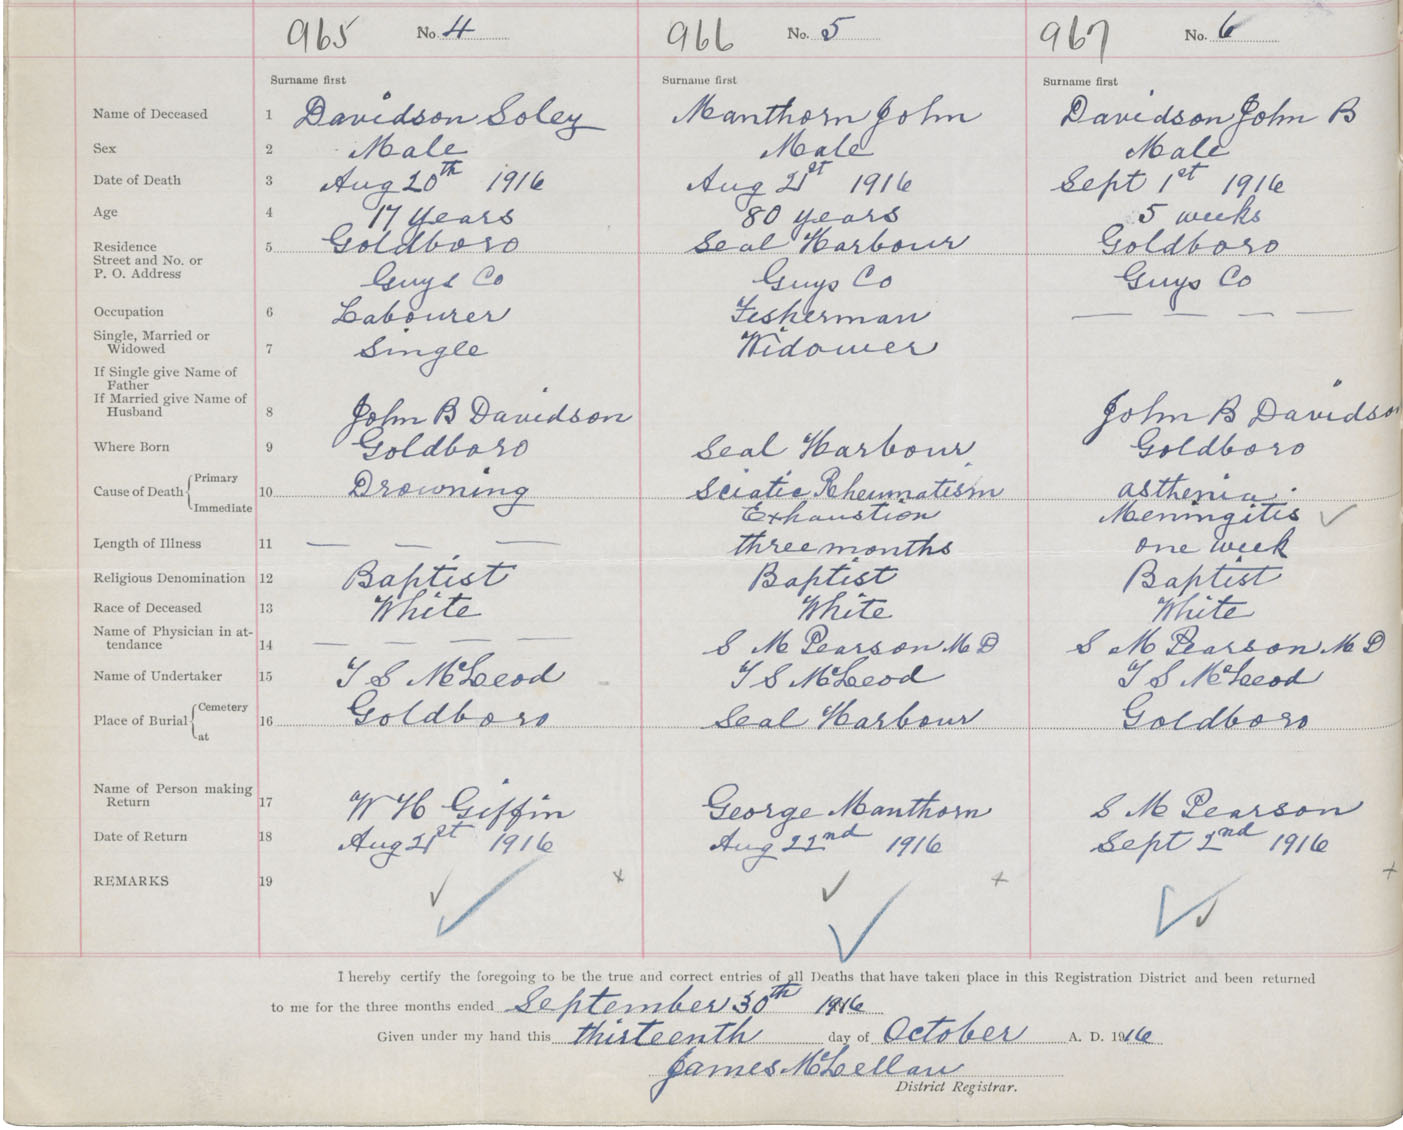 965 No. 4 966 No. 5 967 No. 6
Surname first Surname first Surname first
Name of Deceased 1 Davidson Soley Manthorn John Davidson John B
Sex 2 Male Male Male
Date of Death 3 Aug 20th 1916 Aug 21st 1916 Sept 1st 1916
Age 4 17 years 80 years 5 weeks
Residence 5 Goldboro Seal Harbour Goldboro
Street and No. or
P. O. Address Guys Co Guys Co Guys Co
Occupation 6 Labourer Fisherman — — — —
Single, Married or
Widowed 7 Single Widower
If Single give Name of
Father
If Married give Name of
Husband 8 John B Davidson John B Davidson
Where Born 9 Goldboro Seal Harbour Goldboro
Cause of Death { Primary 10 Drowning Sciatic Rheumatism asthenia
Immediate Exhaustion Meningitis ✓
Length of Illness 11 — — — three months one week
Religious Denomination 12 Baptist Baptist Baptist
Race of Deceased 13 White White White
Name of Physician in at-
tendance 14 — — — — S M Pearson M D S M Pearson M D
Name of Undertaker 15 T S McLeod T S McLeod T S McLeod
Place of Burial { Cemetery 16 Goldboro Seal Harbour Goldboro
at
Name of Person making
Return 17 W H Giffin George Manthorn S M Pearson
Date of Return 18 Aug 21st 1916 Aug 22nd 1916 Sept 2nd 1916
REMARKS 19 ✓ ✓ x ✓ ✓ + ✓ ✓ +
I hereby certify the foregoing to be the true and correct entries of all Deaths that have taken place in this Registration District and been returned
to me for the three months ended September 30th 1916
Given under my hand this thirteenth day of October A. D. 1916
James McLellan
District Registrar.